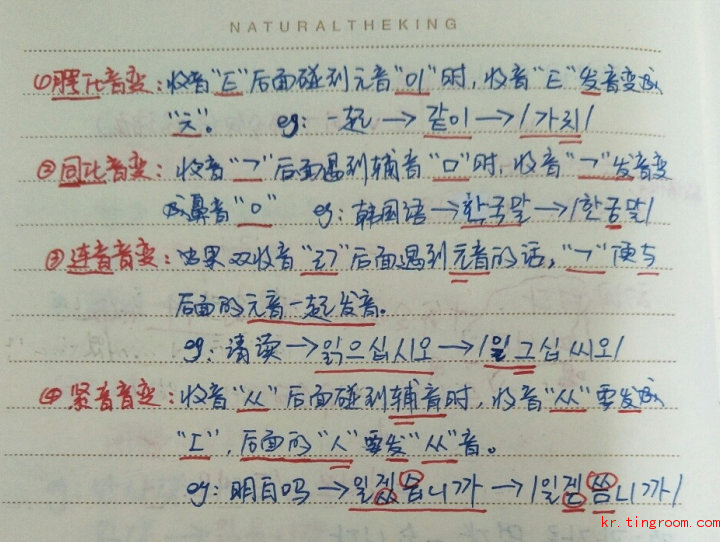 NATURALTHEKING
①腭化音变：收音"ㅌ"后面碰到元音"이"时，收音"ㅌ"发音变成
"ㅊ"。 eg：一起→같이→/가치/
②同化音变：收音"ㄱ"后面遇到辅音"ㅁ"时，收音"ㄱ"发音变
成鼻音"ㅇ" eg：韩国语→한국말→/한궁말/
③连音音变：如果双收音"ㄺ"后面遇到元音的话，"ㄱ"便与
后面的元音一起发音。
eg：请读→읽으십시오→/일그십씨오/
④紧音音变：收音"ㅆ"后面碰到辅音时，收音"ㅆ"要发成
"ㄷ"，后面的"ㅅ"要发"ㅆ"音。
eg：明白吗→알겠습니까→/알겓씀니까/
kr.tingroom.com